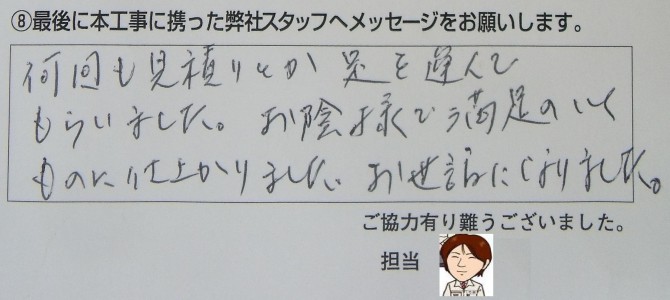 ⑧最後に本工事に携った弊社スタッフへメッセージをお願いします。
何回も見積りとか足を運んで
もらいました。お陰様で満足のいく
ものに仕上がりました。お世話になりました。
ご協力有り難うございました。
担当